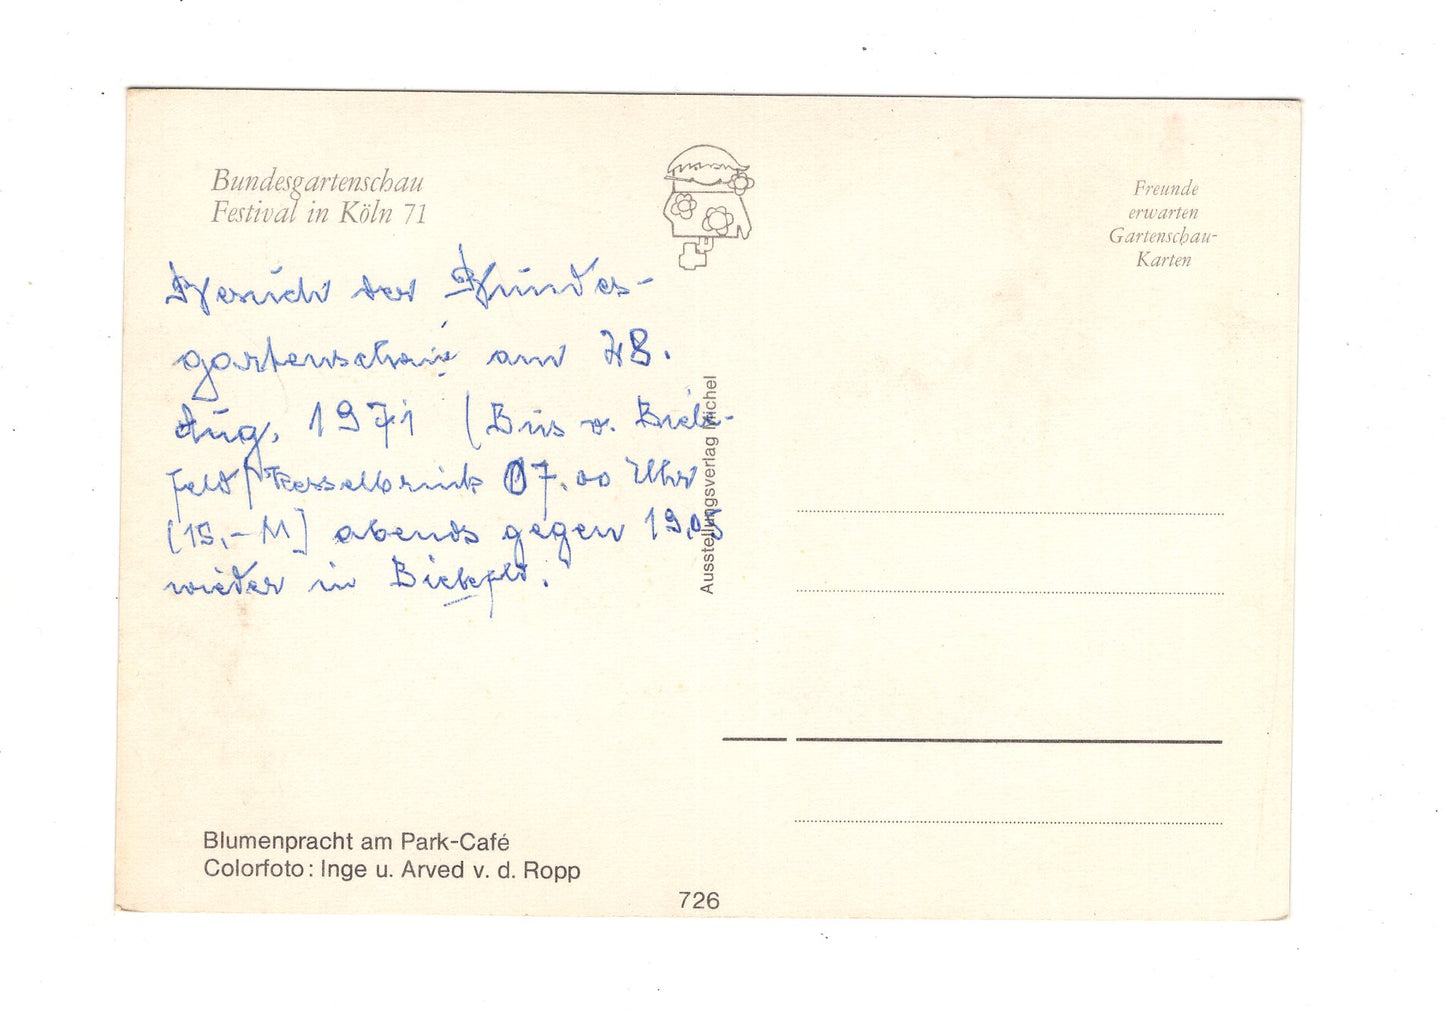 Bundesgartenschau
Festival in Köln 71
Freunde
erwarten
Gartenschau-
Karten
Besuch der Bundes-
gartenschau am
Aug. 1971 (Bus v. Biele-
feld/Kesselbrink 07.00 Uhr
[15,-M] abends gegen 19,05
wieder in Bielefeld.
Ausstellungsverlag Michel
Blumenpracht am Park-Café
Colorfoto: Inge u. Arved v. d. Ropp
726